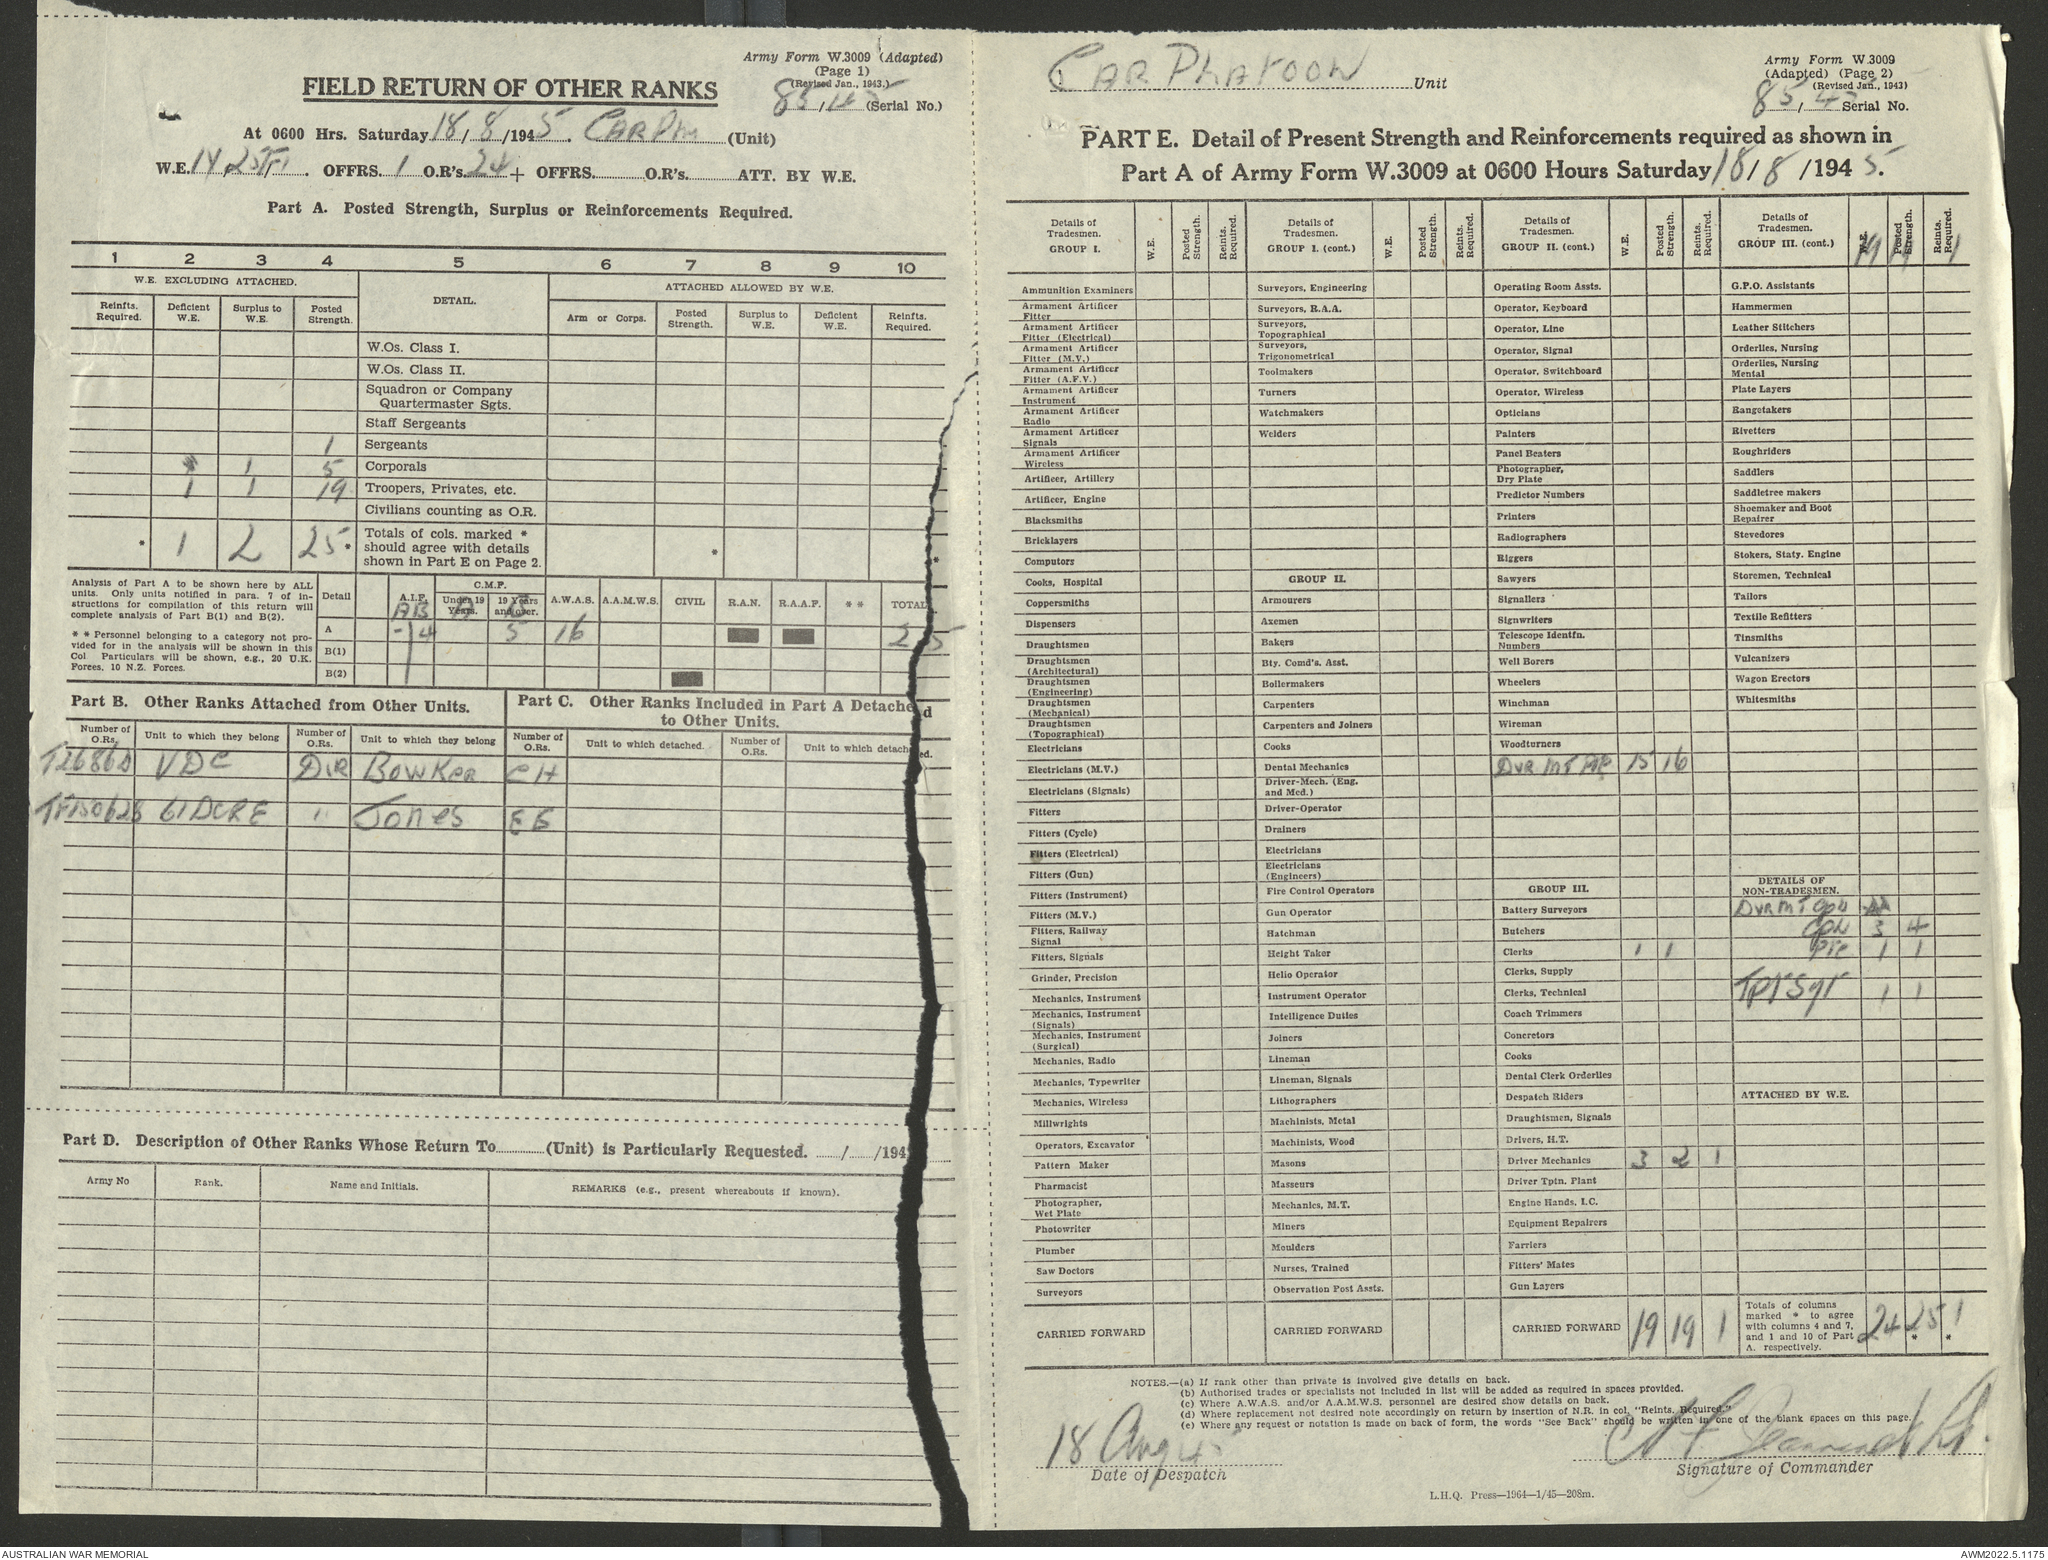 Army Form W.3009 (Adapted)
(Page 1)
(Revised Jan., 1943.)
FIELD RETURN OF OTHER RANKS
85/45 (Serial No.)
At 0600 Hrs. Saturday 18/8/1945. CAR Pln (Unit)
W.E. OFFRS. 1 O.R's. 24 + OFFRS. O.R's. ATT. BY W.E.
Part A. Posted Strength, Surplus or Reinforcements Required.
1 2 3 4 5 6 7 8 9 10
W.E. EXCLUDING ATTACHED. DETAIL. ATTACHED ALLOWED BY W.E.
Reinfts. Required. Deficient W.E. Surplus to W.E. Posted Strength. Arm or Corps. Posted Strength. Surplus to W.E. Deficient W.E. Reinfts. Required.
W.Os. Class I.
W.Os. Class II.
Squadron or Company
Quartermaster Sgts.
Staff Sergeants
1 Sergeants
1 5 Corporals
1 1 19 Troopers, Privates, etc.
Civilians counting as O.R.
* 1 2 25 * Totals of cols. marked *
should agree with details
shown in Part E on Page 2. * *
Analysis of Part A to be shown here by ALL
units. Only units notified in para. 7 of in-
structions for compilation of this return will
complete analysis of Part B(1) and B(2).
* * Personnel belonging to a category not pro-
vided for in the analysis will be shown in this
Col Particulars will be shown, e.g., 20 U.K.
Forces, 10 N.Z. Forces.
Detail A.I.F. C.M.F. Under 19 Years. 19 Years and over. A.W.A.S. A.A.M.W.S. CIVIL R.A.N. R.A.A.F. * * TOTAL
A B
A - 4 5 16 25
B(1)
B(2)
Part B. Other Ranks Attached from Other Units.
Part C. Other Ranks Included in Part A Detached
to Other Units.
Number of O.Rs. Unit to which they belong Number of O.Rs. Unit to which they belong Number of O.Rs. Unit to which detached. Number of O.Rs. Unit to which detached.
T26860 VDC Dvr Bowker CH
TF150628 61 DCRE " Jones EE
Part D. Description of Other Ranks Whose Return To (Unit) is Particularly Requested. / /194
Army No Rank. Name and Initials. REMARKS (e.g., present whereabouts if known).
CAR PLATOON Unit
Army Form W.3009
(Adapted) (Page 2)
(Revised Jan., 1943)
85/45 Serial No.
PART E. Detail of Present Strength and Reinforcements required as shown in
Part A of Army Form W.3009 at 0600 Hours Saturday 18/8/1945.
Details of Tradesmen. GROUP I. W.E. Posted Strength. Reints. Required.
Ammunition Examiners
Armament Artificer Fitter
Armament Artificer Fitter (Electrical)
Armament Artificer Fitter (M.V.)
Armament Artificer Fitter (A.F.V.)
Armament Artificer Instrument
Armament Artificer Radio
Armament Artificer Signals
Armament Artificer Wireless
Artificer, Artillery
Artificer, Engine
Blacksmiths
Bricklayers
Computors
Cooks, Hospital
Coppersmiths
Dispensers
Draughtsmen
Draughtsmen (Architectural)
Draughtsmen (Engineering)
Draughtsmen (Mechanical)
Draughtsmen (Topographical)
Electricians
Electricians (M.V.)
Electricians (Signals)
Fitters
Fitters (Cycle)
Fitters (Electrical)
Fitters (Gun)
Fitters (Instrument)
Fitters (M.V.)
Fitters, Railway Signal
Fitters, Signals
Grinder, Precision
Mechanics, Instrument
Mechanics, Instrument (Signals)
Mechanics, Instrument (Surgical)
Mechanics, Radio
Mechanics, Typewriter
Mechanics, Wireless
Millwrights
Operators, Excavator
Pattern Maker
Pharmacist
Photographer, Wet Plate
Photowriter
Plumber
Saw Doctors
Surveyors
CARRIED FORWARD
Details of Tradesmen. GROUP I. (cont.) W.E. Posted Strength. Reints. Required.
Surveyors, Engineering
Surveyors, R.A.A.
Surveyors, Topographical
Surveyors, Trigonometrical
Toolmakers
Turners
Watchmakers
Welders
GROUP II.
Armourers
Axemen
Bakers
Bty. Comd's. Asst.
Boilermakers
Carpenters
Carpenters and Joiners
Cooks
Dental Mechanics
Driver-Mech. (Eng. and Med.)
Driver-Operator
Drainers
Electricians
Electricians (Engineers)
Fire Control Operators
Gun Operator
Hatchman
Height Taker
Helio Operator
Instrument Operator
Intelligence Duties
Joiners
Lineman
Lineman, Signals
Lithographers
Machinists, Metal
Machinists, Wood
Masons
Masseurs
Mechanics, M.T.
Miners
Moulders
Nurses, Trained
Observation Post Assts.
CARRIED FORWARD
Details of Tradesmen. GROUP II. (cont.) W.E. Posted Strength. Reints. Required.
Operating Room Assts.
Operator, Keyboard
Operator, Line
Operator, Signal
Operator, Switchboard
Operator, Wireless
Opticians
Painters
Panel Beaters
Photographer, Dry Plate
Predictor Numbers
Printers
Radiographers
Riggers
Sawyers
Signallers
Signwriters
Telescope Identfn. Numbers
Well Borers
Wheelers
Winchman
Wireman
Woodturners
DVR MT Pte 15 16
GROUP III.
Battery Surveyors
Butchers
Clerks 1 1
Clerks, Supply
Clerks, Technical
Coach Trimmers
Concretors
Cooks
Dental Clerk Orderlies
Despatch Riders
Draughtsmen, Signals
Drivers, H.T.
Driver Mechanics 3 2 1
Driver Tptn. Plant
Engine Hands, I.C.
Equipment Repairers
Farriers
Fitters' Mates
Gun Layers
CARRIED FORWARD 19 19 1
Details of Tradesmen. GROUP III. (cont.) W.E. Posted Strength. Reints. Required.
19 19 1
G.P.O. Assistants
Hammermen
Leather Stitchers
Orderlies, Nursing
Orderlies, Nursing Mental
Plate Layers
Rangetakers
Rivetters
Roughriders
Saddlers
Saddletree makers
Shoemaker and Boot Repairer
Stevedores
Stokers, Staty. Engine
Storemen, Technical
Tailors
Textile Refitters
Tinsmiths
Vulcanizers
Wagon Erectors
Whitesmiths
DETAILS OF NON-TRADESMEN.
DVR MT Cpl
Cpl 3 4
Pte 1 1
Tpt Sgt 1 1
ATTACHED BY W.E.
Totals of columns
marked * to agree
with columns 4 and 7,
and 1 and 10 of Part
A. respectively. 24 25 * 1 *
NOTES.—(a) If rank other than private is involved give details on back.
(b) Authorised trades or specialists not included in list will be added as required in spaces provided.
(c) Where A.W.A.S. and/or A.A.M.W.S. personnel are desired show details on back.
(d) Where replacement not desired note accordingly on return by insertion of N.R. in col. "Reints. Required."
(e) Where any request or notation is made on back of form, the words "See Back" should be written in one of the blank spaces on this page.
18 Aug 45
Date of Despatch
Lt.
Signature of Commander
L.H.Q. Press—1964—1/45—208m.
AUSTRALIAN WAR MEMORIAL
AWM2022.5.1175